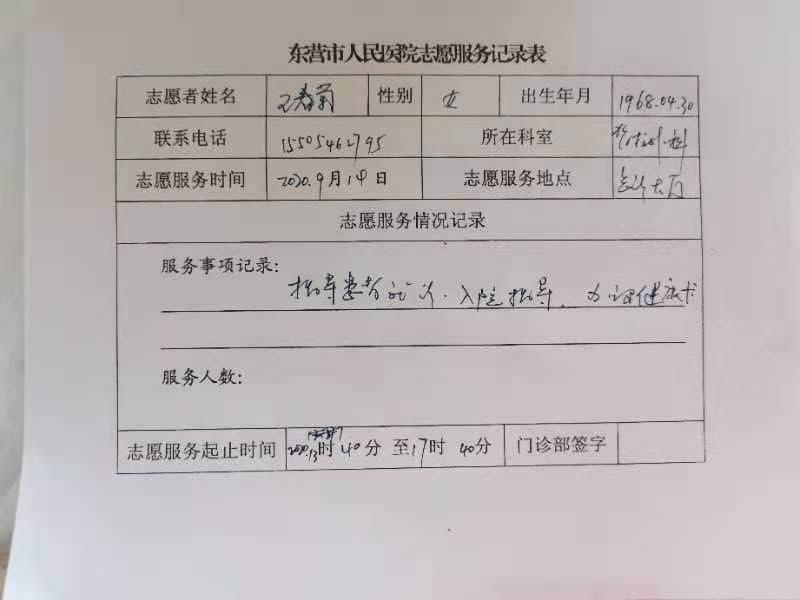 东营市人民医院志愿服务记录表
志愿者姓名 王春菊 性别 女 出生年月 1968.04.30
联系电话 15505462795 所在科室 外科
志愿服务时间 2020.9月14日 志愿服务地点 门诊大厅
志愿服务情况记录
服务事项记录:
指导患者就诊、入院指导、办理健康卡
服务人数:
志愿服务起止时间 13时40分 至17时 40分 门诊部签字